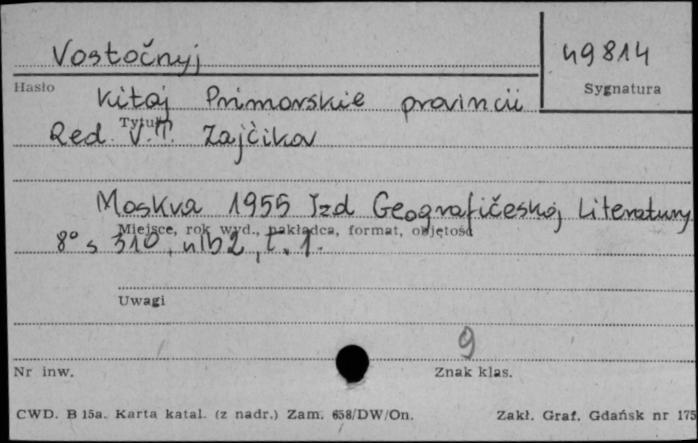 Vostočnyj
49814
Hasło
Sygnatura
Kitaj Primorskie provincii
Tytuł
Red. V.T. Zajčikov
Moskva 1955 Izd Geografičeskoj Literatury
Miejsce, rok wyd., nakładca, format, objętość
8° s 310, nlb 2, t. 1.
Uwagi
9
Nr inw.
Znak klas.
CWD. B 15a. Karta katal. (z nadr.) Zam. 658/DW/On.
Zakł. Graf. Gdańsk nr 175